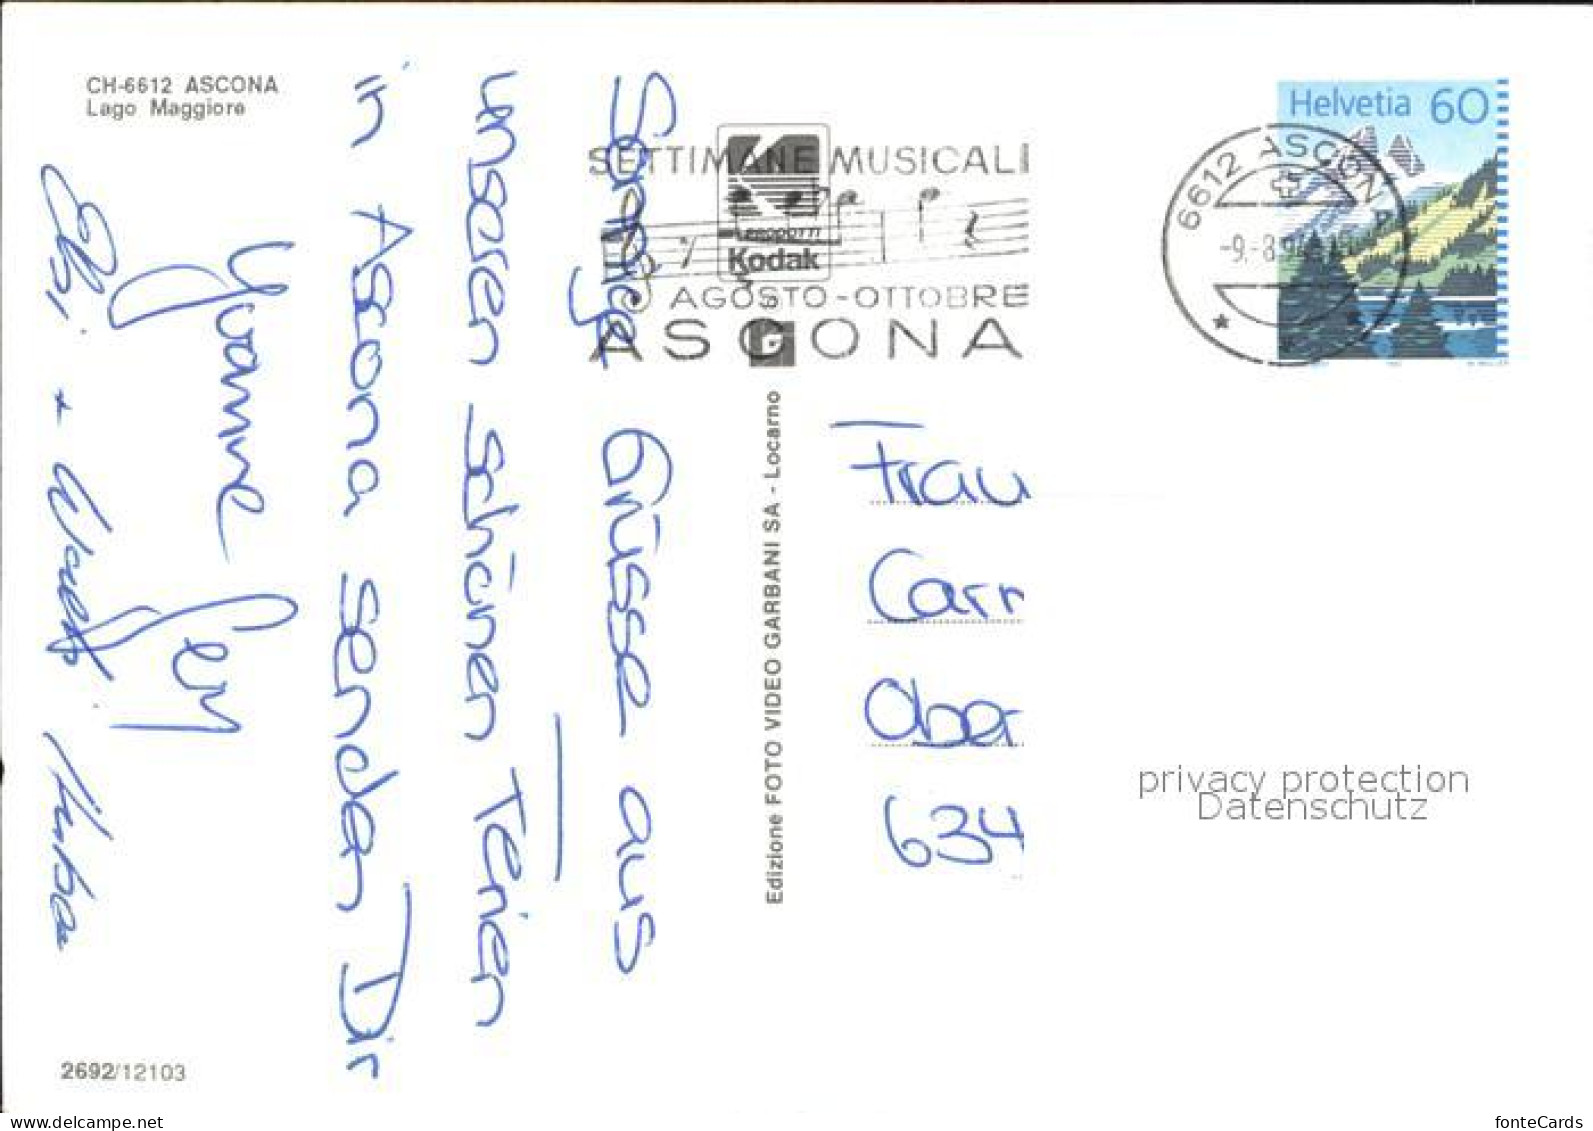 CH-6612 ASCONA
Lago Maggiore
Sonnige Grüsse aus
unseren schönen Ferien
in Ascona senden Dir
Yvonne
Ebi + Huber
SETTIMANE MUSICALI
AGOSTO-OTTOBRE
ASCONA
PRODOTTI
Kodak
6612 ASCONA
-9.-8.9
Helvetia 60
Edizione FOTO VIDEO GARBANI SA - Locarno
Frau
Carr
Ober
634
privacy protection
Datenschutz
2692/12103
www.delcampe.net
fonteCards